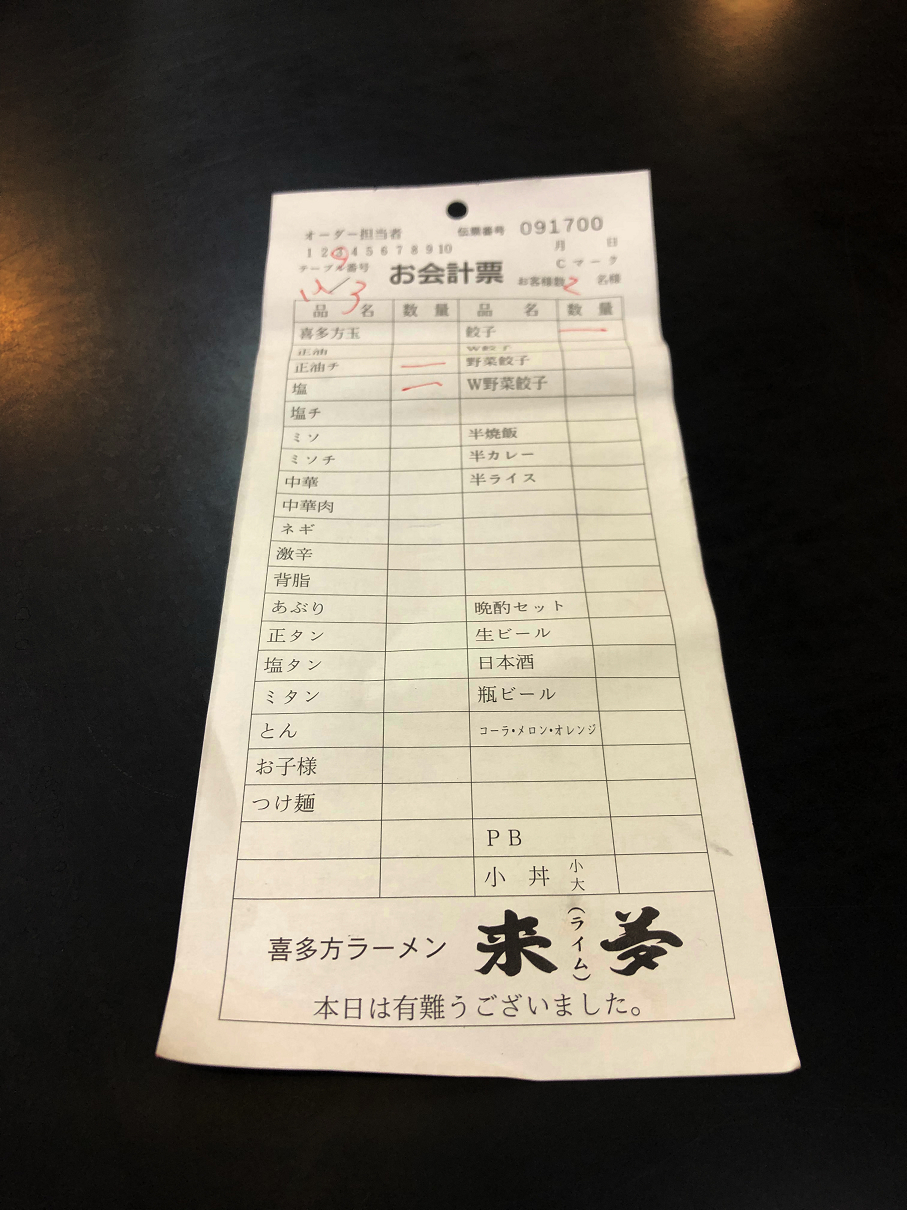 オーダー担当者 伝票番号 091700
1 2 3 4 5 6 7 8 9 10 月 日
テーブル番号 お会計票 Cマーク
お客様数 2 名様
品 名 数 量 品 名 数 量
喜多方玉 餃子 一
正油 W餃子
正油チ 一 野菜餃子
塩 一 W野菜餃子
塩チ
ミソ 半焼飯
ミソチ 半カレー
中華 半ライス
中華肉
ネギ
激辛
背脂
あぶり 晩酌セット
正タン 生ビール
塩タン 日本酒
ミタン 瓶ビール
とん コーラ・メロン・オレンジ
お子様
つけ麺
PB
小 丼 小 大
喜多方ラーメン 来夢 (ライム)
本日は有難うございました。